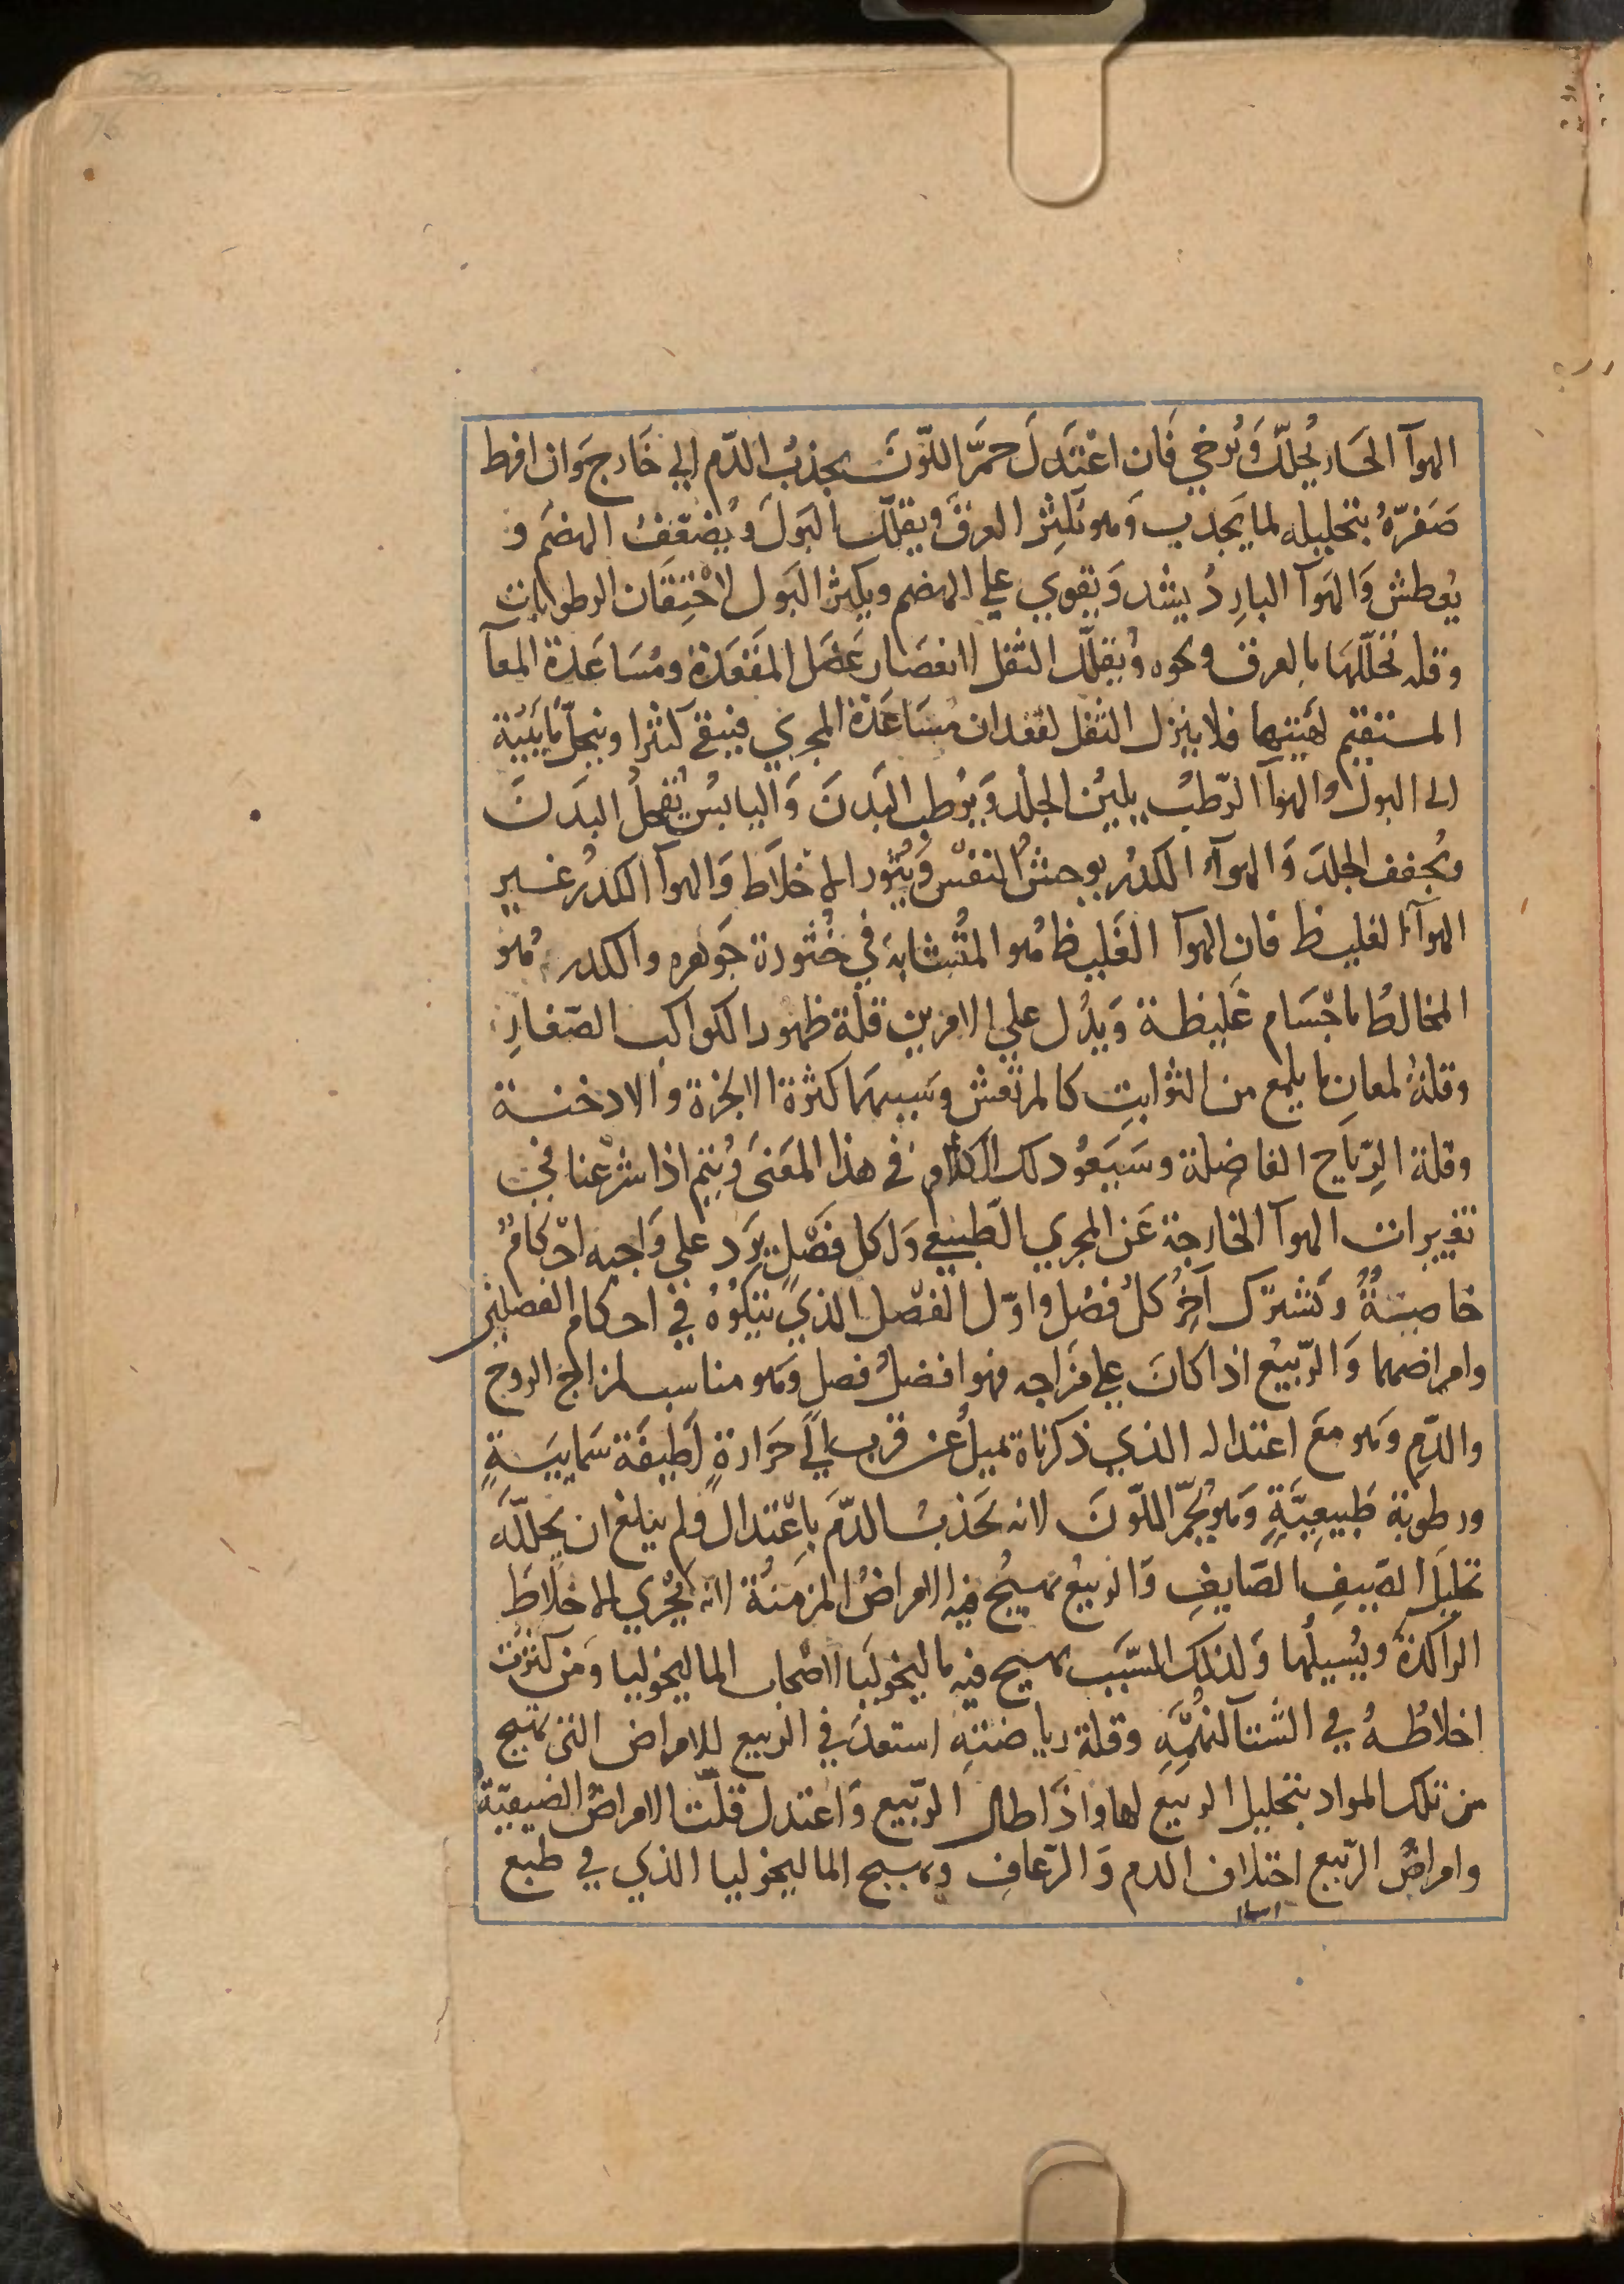 الهوآ الحَار يُحلّل وَيُرخي فَان اعْتَدَلَ حمَّر اللّونَ بجذبُ الدّم الي خَارج وَان افرط
صَفرّهُ بتحليله لما يَجذب وَهو يكثر العرقَ ويقلّل البَولَ وَيُضَعّفُ الهضمَ و
يُعطش وَالهَوآ البارِدُ يشد وَيقوي علي الهضم ويكثر البَول لاحْتِقَان الرطوبات
وقله تحَلّلهَا بالعرق ونحوه وَيقلّل الثفل لانعصَار عَضَل المقْعَدة ومُسَاعَدة المعآ
المستقيم لهَيئتهما فلا ينزل الثفل لفقدان مُسَاعَدة المجري فيبقي كثيرا وينحلّ مَايَيّتة
الى البول والهوآ الرّطبُ يليّن الجلدَ وَيُرطب البَدنَ وَاليابسُ يُقحلُ البَدَنَ
ويُجفف الجلدَ وَالهوآء الكدرُ يوحشُ النفسَ وَيُثور الاخلاَط وَالهوآ الكدرُ غير
الهوآء الغليظ فان الهوآ الغَليظ هُو المتُشابهَ في خُثُورة جَوهره والكدر هُو
المخالطُ باجْسَام غَليظة وَيدُل علي الامرين قلة ظهور الكواكب الصّغارِ
وقلةُ لمعانِ ما يلمع من الثوابتِ كالمرتعش وسَببهمَا كثرة الابخرة والادخنة
وقلة الرّياح الفاضلة وسَيَعُود لك الكلام في هذا المَعنَى وَيُتم اذا شرَعْنا في
تغييرات الهوآ الخارجة عَن المجري الطّبيعي وَلكل فَصْلٍ يَرد علي وَاجبه احْكامٌ
خاصيّةٌ وَتَشترك آخِرُ كلُ فصْل واوّل الفصْل الذي يتلُوهُ في احكام الفصلين
وامراضهما وَالرّبيع اذا كانَ علي مَزَاجه فهو افضلُ فصل وَهو مناسب لمزاج الروح
والدّمِ وَهو مَع اعتداله الذي ذكرناه تميلُ عن قرب الي حَرَارةٍ لَطيفَة سَمايَيَةٍ
ورطوبة طَبيعِيّةٍ وَهو يُحمّر اللّونَ لانه يَجَذبُ الدّمَ باعْتدال وَلم يبلغ ان يحللّهَ
تحليلَ الصّيفِ الصَايفِ وَالربيع تهيجُ فيه الامراضُ المزمنُة لانه يُجْري الاخلاطَ
الراكدَةَ ويُسيلُها وَلذلك السّبَب تهيج فيه ماليخوليَا اصْحاب الماليخوليا وَمَن كثرت
اخلاطُهُ في الشتآ لنَهمِه وقلة رياضتِهِ استعدَ في الربيع للامراض التي تهيج
من تلك المواد بتحليل الربيع لها واذَا طال الرّبيع وَاعتدل قلّت الامراضُ الصَيفيّةُ
وامراضُ الرّبيع اختلاف الدم وَالرّعافِ وتهييج الماليخوليا الذي في طبع